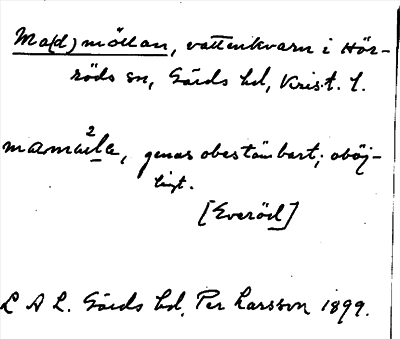 Ma(d)möllan, vattenkvarn i Hör-
röds sn, Gärds hd, Krist. l.
2
genas obestämbart; oböj-
ligt.
[Everöd]
L A L. Gärds hd. Per Larsson 1899.